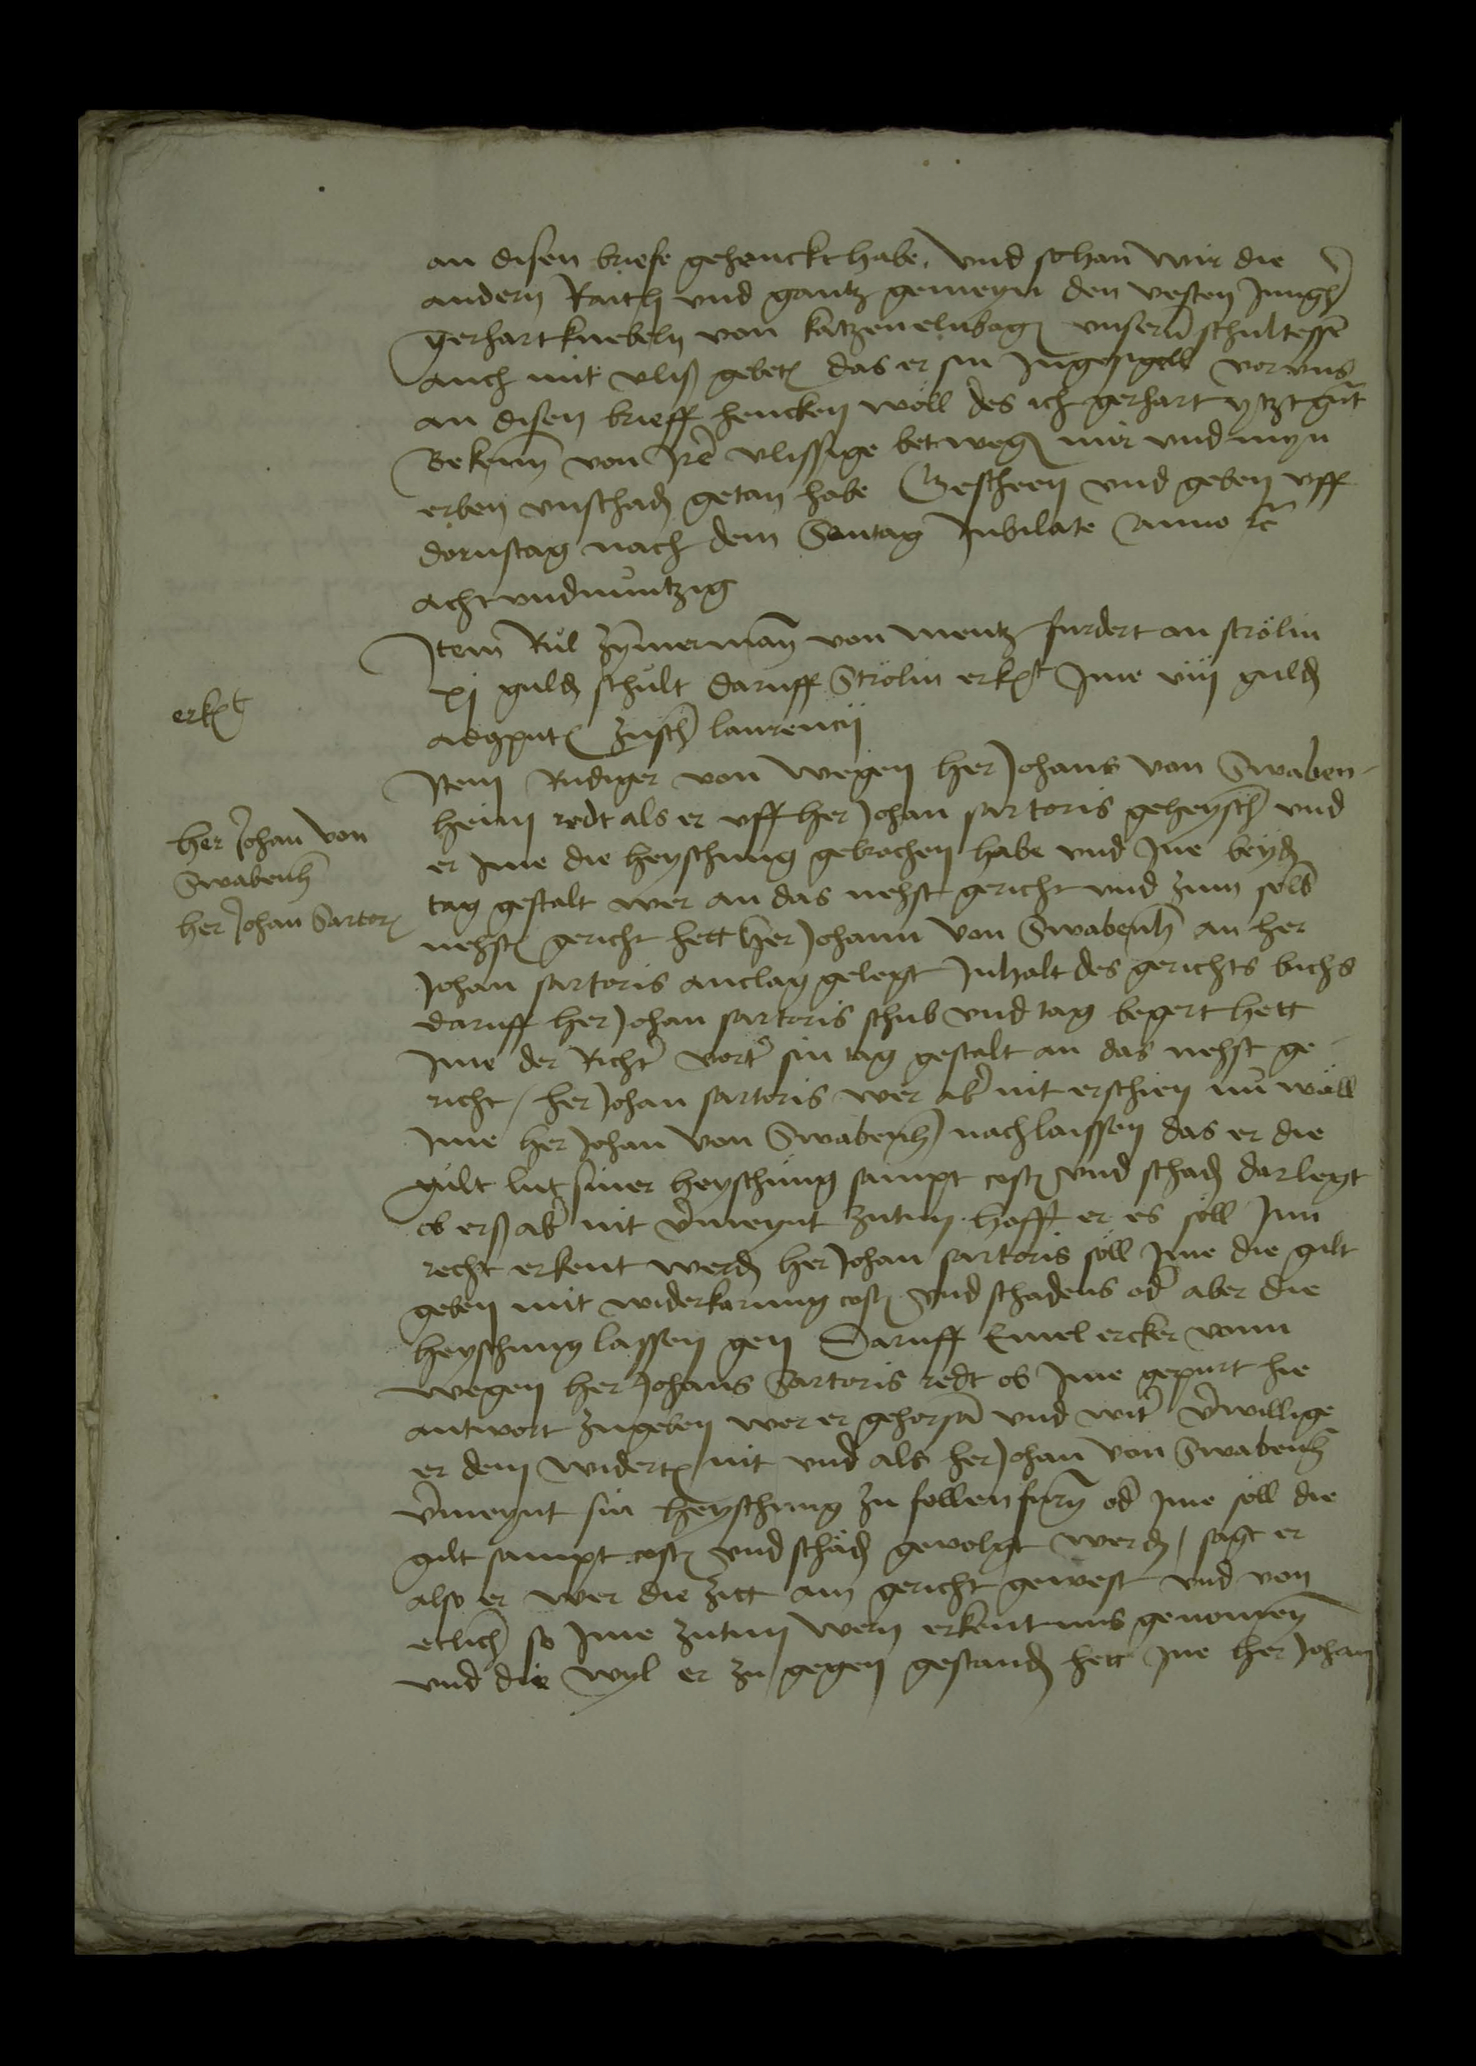 an disen briefe gehenckt habe, Vnd so han wir die
andern Raith vnd gantz gemeyn den vesten Jungh̄
Gerhart knebeln von katzenelnbogē vnserñ schultessē
auch mit vliß gebetē das er sin Ingesigell vor vns
an disen brieff hencken wöll des ich gerhart ytztgn̄t
Bekenn von Jrē vlissige bet wegē mir vnd myn
erben vnschadē getan habe Gescheen vnd geben vff
dornstag nach dem Sontag Jubilate Anno rē
acht vnd nuntzig
Item Rul zym̄erman̄ von mentz furdert an strölin
xj guldē schult daruff Strölin erkēt Jme viij guldē
zusch̄ laurencij
Item Rudiger von wegen her Johans von Swaben-
heim redt als er vff her Johan sartoris geheyscħ vnd
er Jme die heyschung gebrochen habe vnd Jne beydē
tag gestalt wer an das nehst gericht vnd zum selb̄
nehstē gericht hett her Johann von Swabenh̄ an her
Johan sartoris anclag gelegt Jnhalt des gerichts buchs
daruff her Johan sartoris schub vnd tag begert hett
Jme der Richt̄ vort̄ sin tag gestalt an das nehst ge-
richt / her Johan sartoris wer ab̄ nit erschien nū wöll
Jme her Johan von Swabenh̄ nachlaissen das er die
gult lut siner heyschung sampt costē vnd schadē darlegt
ob erß ab̄ nit v̄meynt zutun hofft er es söll Jnn
recht erkent werdē her Johan sartoris söll Jme die gilt
geben mit widerkarung costē vnd schadens od̄ aber die
heyschung lassen gen Daruff Emel ercker vonn
wegen her Johans Sartoris redt ob Jme gepurt hie
antwort zugeben wer er gehorsā vnd wit̄ v̄willige
er dem widertē nit vnd als her Johan von Swabenh̄
v̄meynt sin heyschung zu follenfurn̄ od̄ Jme söll die
gilt sampt costē vnd schadē gevolgt werdē / sagt er
also er wer die zitt am gericht gewest vnd von
etlich̄ so Jme zutun wern erkentnus genomen̄
vnd die wyl er zu gegen gestandē hett Jne her Johan
erkēt
her Johan von
Swabenh̄
her Johan Sartorē